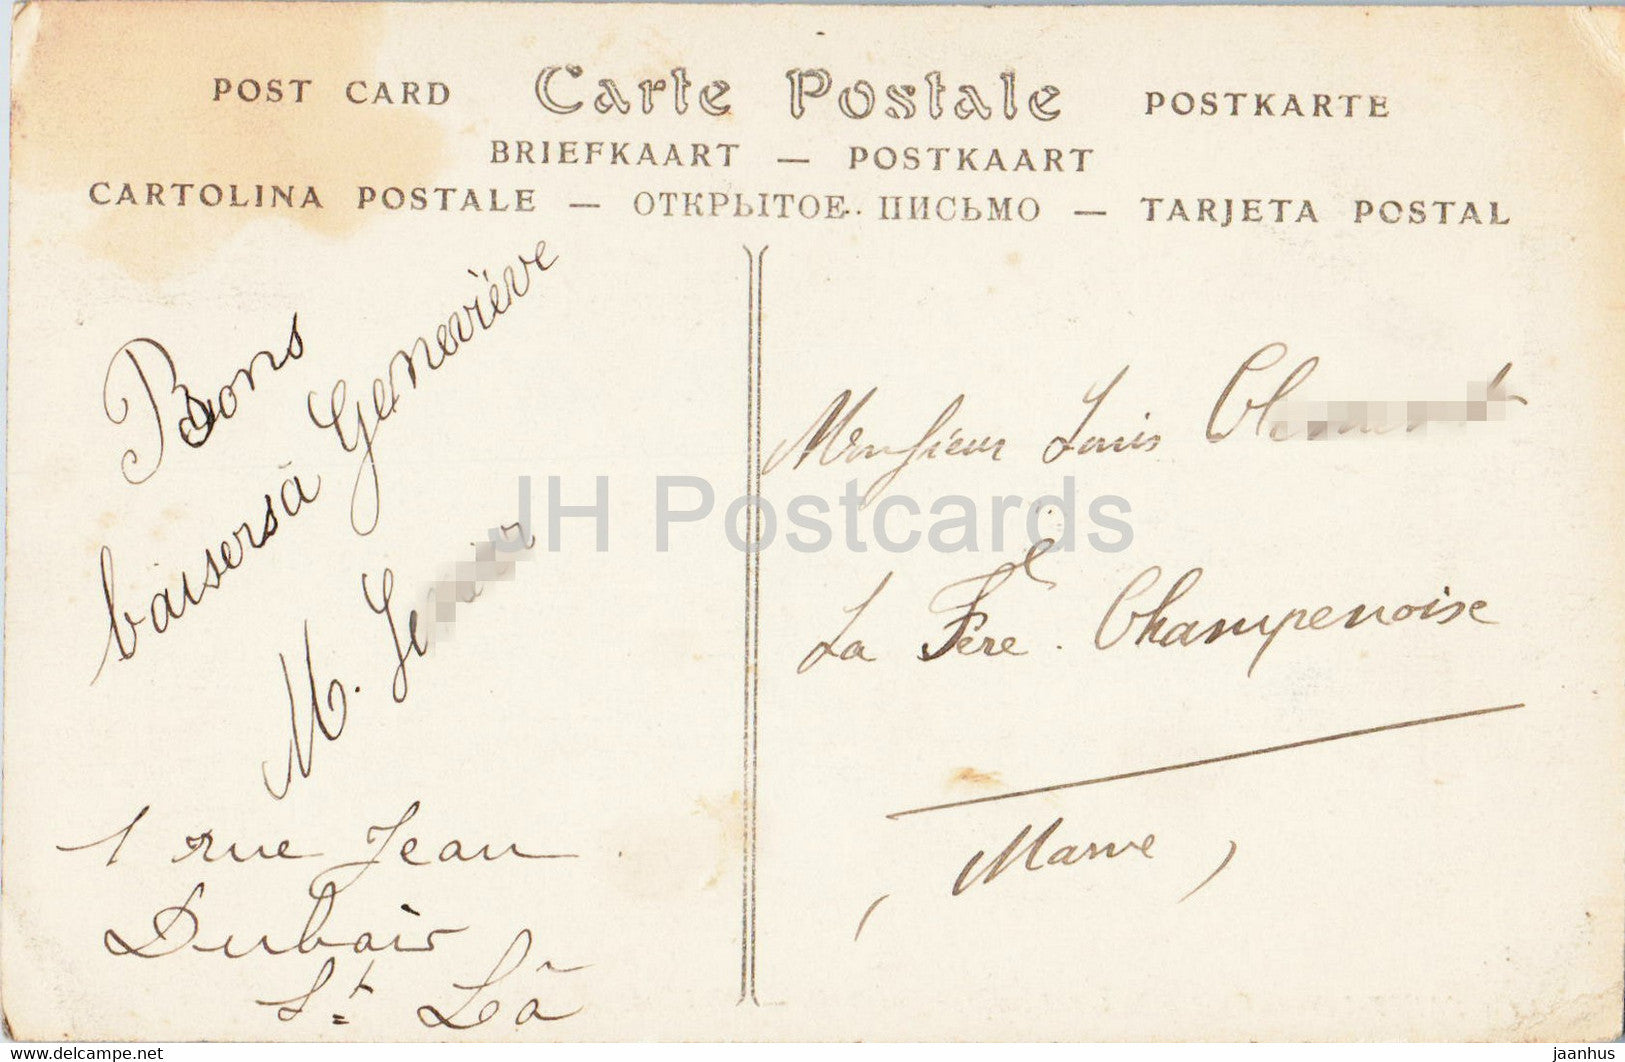 POST CARD Carte Postale POSTKARTE
BRIEFKAART — POSTKAART
CARTOLINA POSTALE — ОТКРЫТОЕ ПИСЬМО — TARJETA POSTAL
Bons
baisers à Geneviève
M.
1 rue Jean
Dubois
St. Lô
Monsieur Louis
La Fère Champenoise
(Marne)
JH Postcards
www.delcampe.net
jaanhus